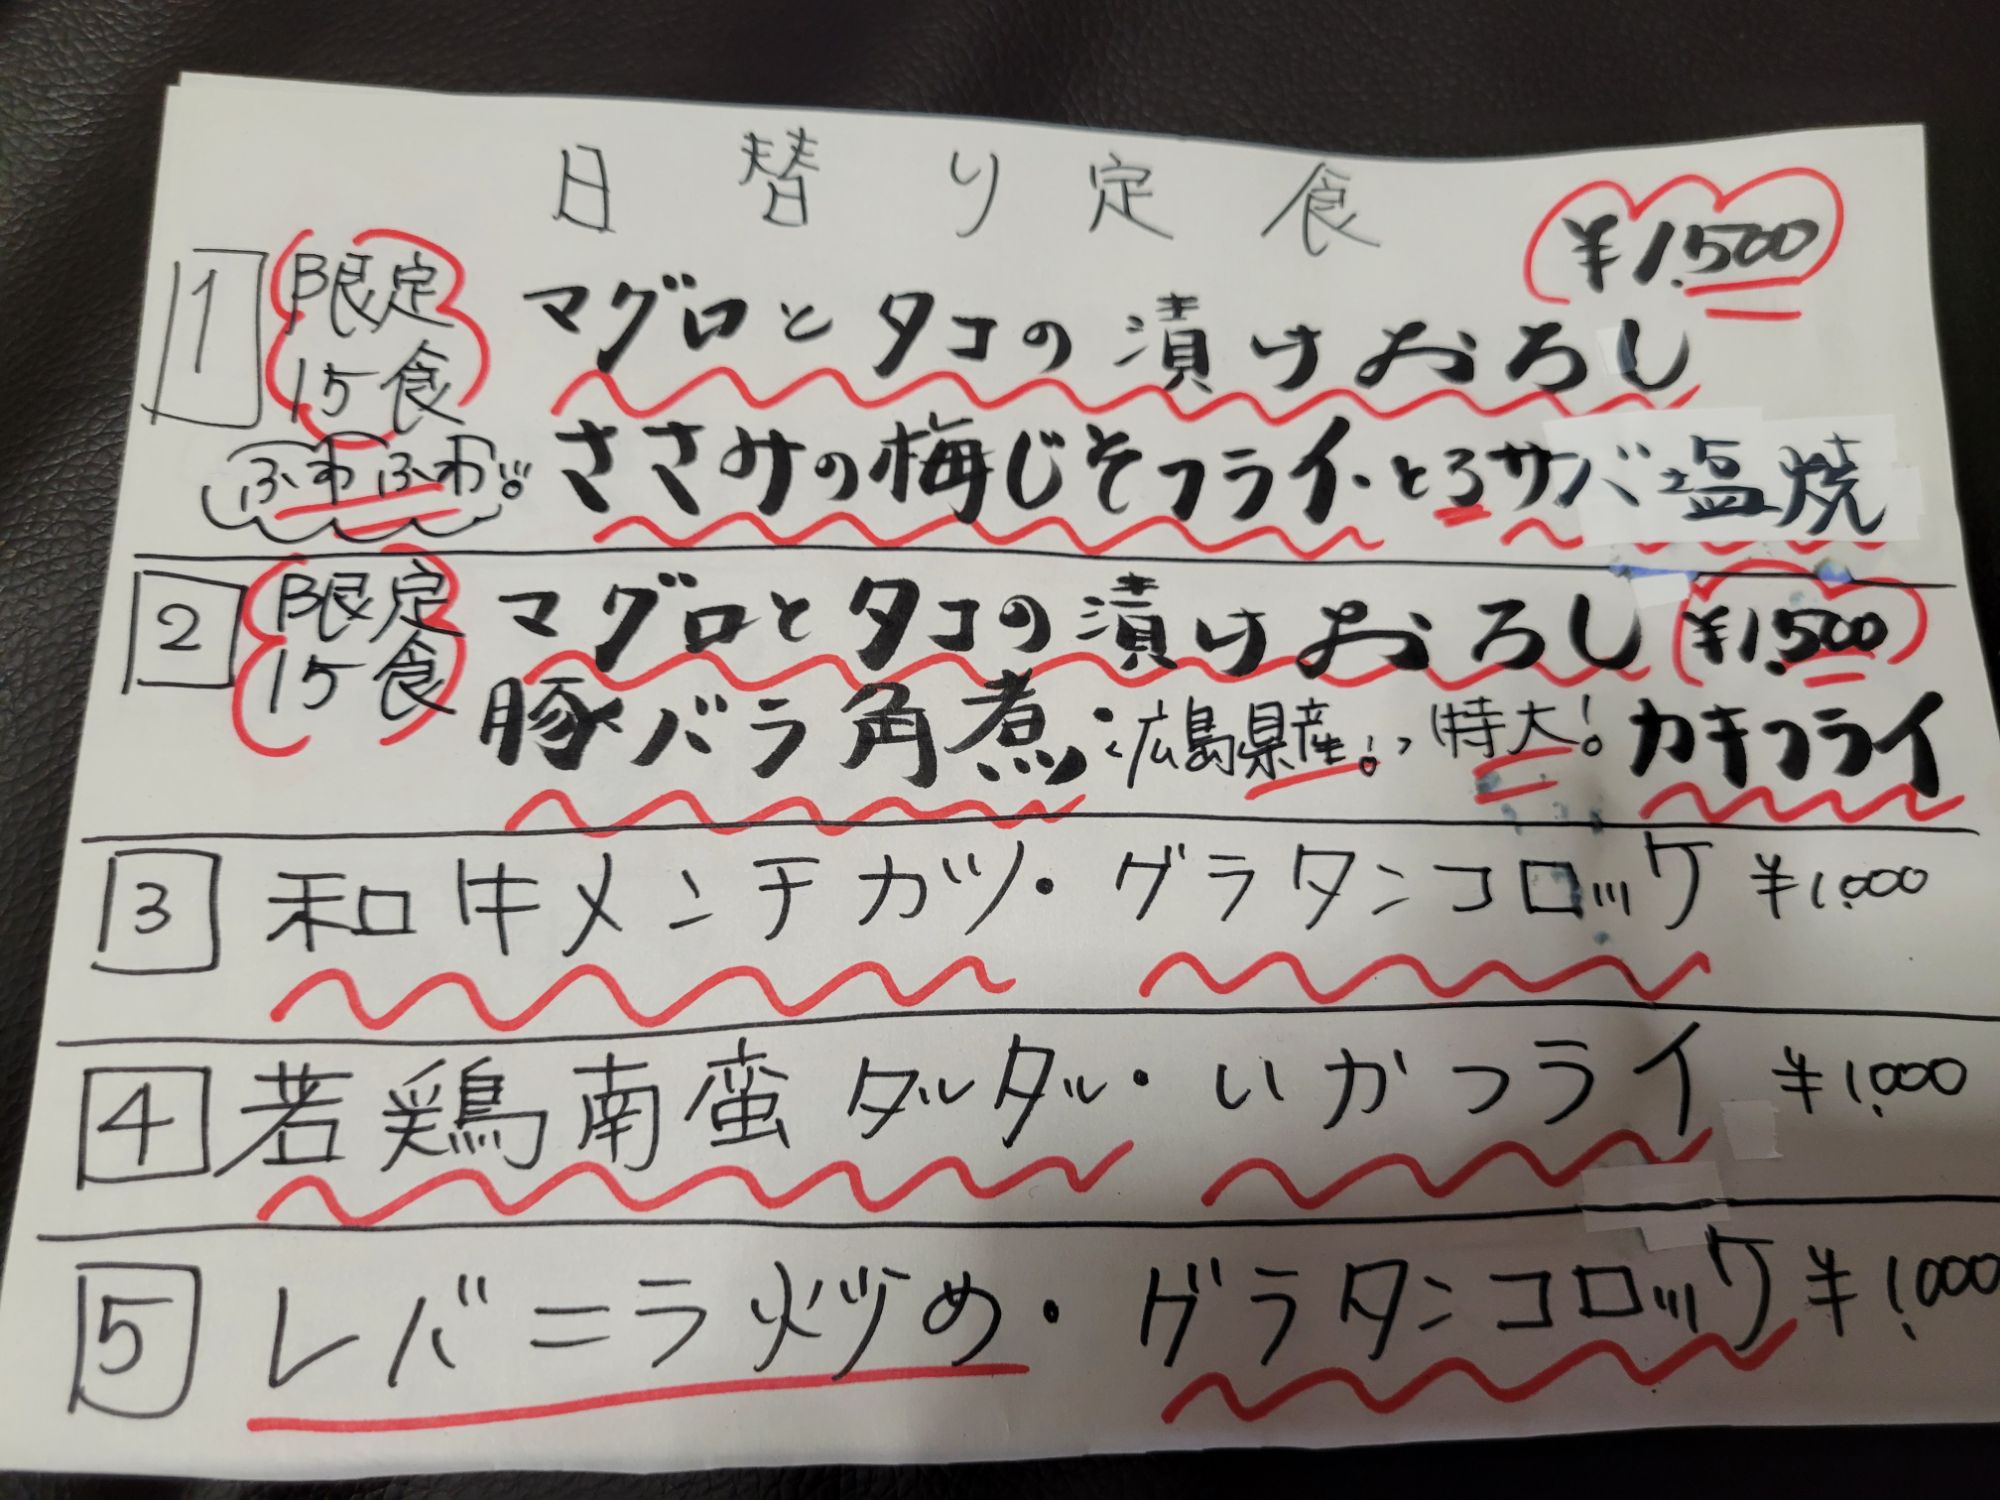 日替り定食
1 限定15食 マグロとタコの漬けおろし ¥1.500
ふわふわ!! ささみの梅じそフライ・とろサバ塩焼
2 限定15食 マグロとタコの漬けおろし ¥1.500
豚バラ角煮・広島県産!、特大!カキフライ
3 和牛メンチカツ・グラタンコロッケ ¥1.000
4 若鶏南蛮タルタル・いかフライ ¥1.000
5 レバニラ炒め・グラタンコロッケ ¥1.000